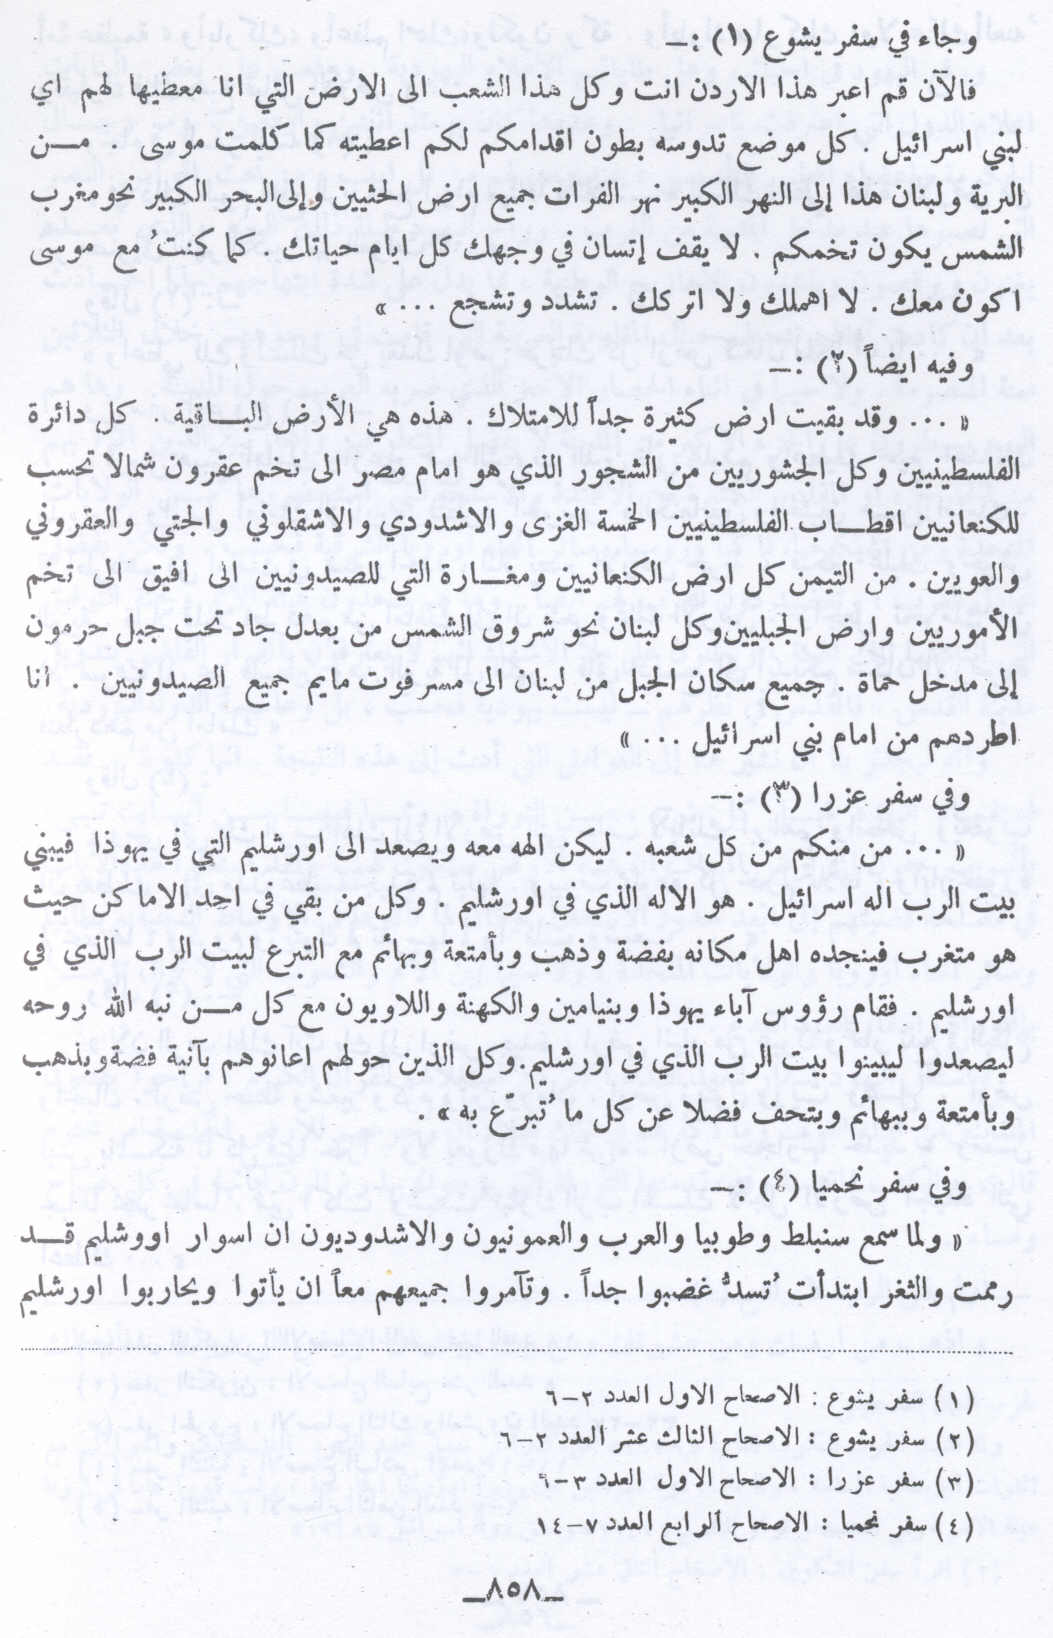 وجاء في سفر يشوع (١) :ــ
فالآن قم اعبر هذا الاردن انت وكل هذا الشعب الى الارض التي انا معطيها لهم اي
لبني اسرائيل . كل موضع تدوسه بطون اقدامكم لكم اعطيته كما كلمت موسى . مــن
البرية ولبنان هذا إلى النهر الكبير نهر الفرات جميع ارض الحثيين وإلى البحر الكبير نحو مغرب
الشمس يكون تخمكم . لا يقف إنسان في وجهك كل ايام حياتك . كما كنتُ مع موسى
اكون معك . لا اهملك ولا اتركك . تشدد وتشجع ... »
وفيه ايضاً (٢) :ــ
« ... وقد بقيت ارض كثيرة جداً للامتلاك . هذه هي الأرض البــاقية . كل دائرة
الفلسطينيين وكل الجشوريين من الشجور الذي هو امام مصر الى تخم عقرون شمالا تحسب
للكنعانيين اقطــاب الفلسطينيين الخمسة الغزى والاشدودي والاشقلوني والجتي والعقروني
والعويين . من التيمن كل ارض الكنعانيين ومغــارة التي للصيدونيين الى افيق الى تخم
الأموريين وارض الجبليين وكل لبنان نحو شروق الشمس من بعدل جاد تحت جبل حرمون
إلى مدخل حماة . جميع سكان الجبل من لبنان الى مسرفوت مايم جميع الصيدونيين . انا
اطردهم من امام بني اسرائيل ... »
وفي سفر عزرا (٣) :ــ
« ... من منكم من كل شعبه . ليكن الهه معه ويصعد الى اورشليم التي في يهوذا فيبني
بيت الرب اله اسرائيل . هو الاله الذي في اورشليم . وكل من بقي في احد الاماكن حيث
هو متغرب فينجده اهل مكانه بفضة وذهب وبأمتعة وبهائم مع التبرع لبيت الرب الذي في
اورشليم . فقام رؤوس آباء يهوذا وبنيامين والكهنة واللاويون مع كل مــن نبه الله روحه
ليصعدوا ليبينوا بيت الرب الذي في اورشليم . وكل الذين حولهم اعانوهم بآنية فضة وبذهب
وبأمتعة وببهائم وبتحف فضلا عن كل ما تُبرّع به » .
وفي سفر نحميا (٤) :ــ
« ولما سمع سنبلط وطوبيا والعرب والعمونيون والاشدوديون ان اسوار اووشليم قــد
رممت والثغر ابتدأت تُسدُّ غضبوا جداً . وتآمروا جميعهم معاً ان يأتوا ويحاربوا اورشليم
(١) سفر يشوع : الاصحاح الاول العدد ٢–٦
(٢) سفر يشوع : الاصحاح الثالث عشر العدد ٢–٦
(٣) سفر عزرا : الاصحاح الاول العدد ٣–٦
(٤) سفر نحميا : الاصحاح الرابع العدد ٧–١٤
ــ٨٥٨ــ